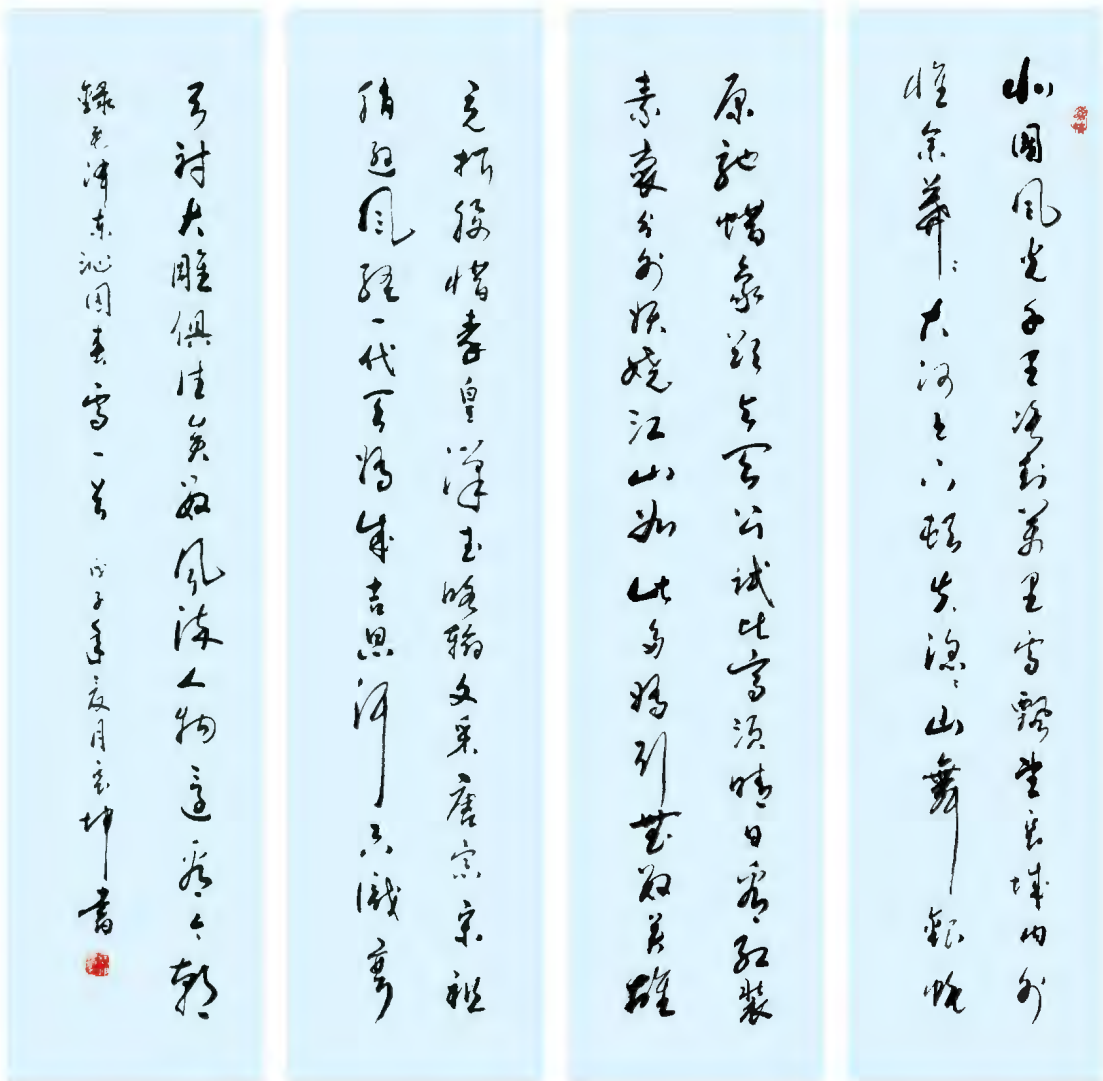 北國風光千里冰封萬里雪飄望長城內外
惟余莽〻大河上下頓失滔〻山舞銀蛇
原馳蠟象欲與天公試比高須晴日看紅裝
素裹分外妖嬈江山如此多嬌引無數英雄
竞折腰惜秦皇漢武略輸文采唐宗宋祖
稍遜風騷一代天驕成吉思汗只識彎
弓射大雕俱往矣數風流人物還看今朝
錄毛澤東沁園春雪一首 戊子年夏月坤書